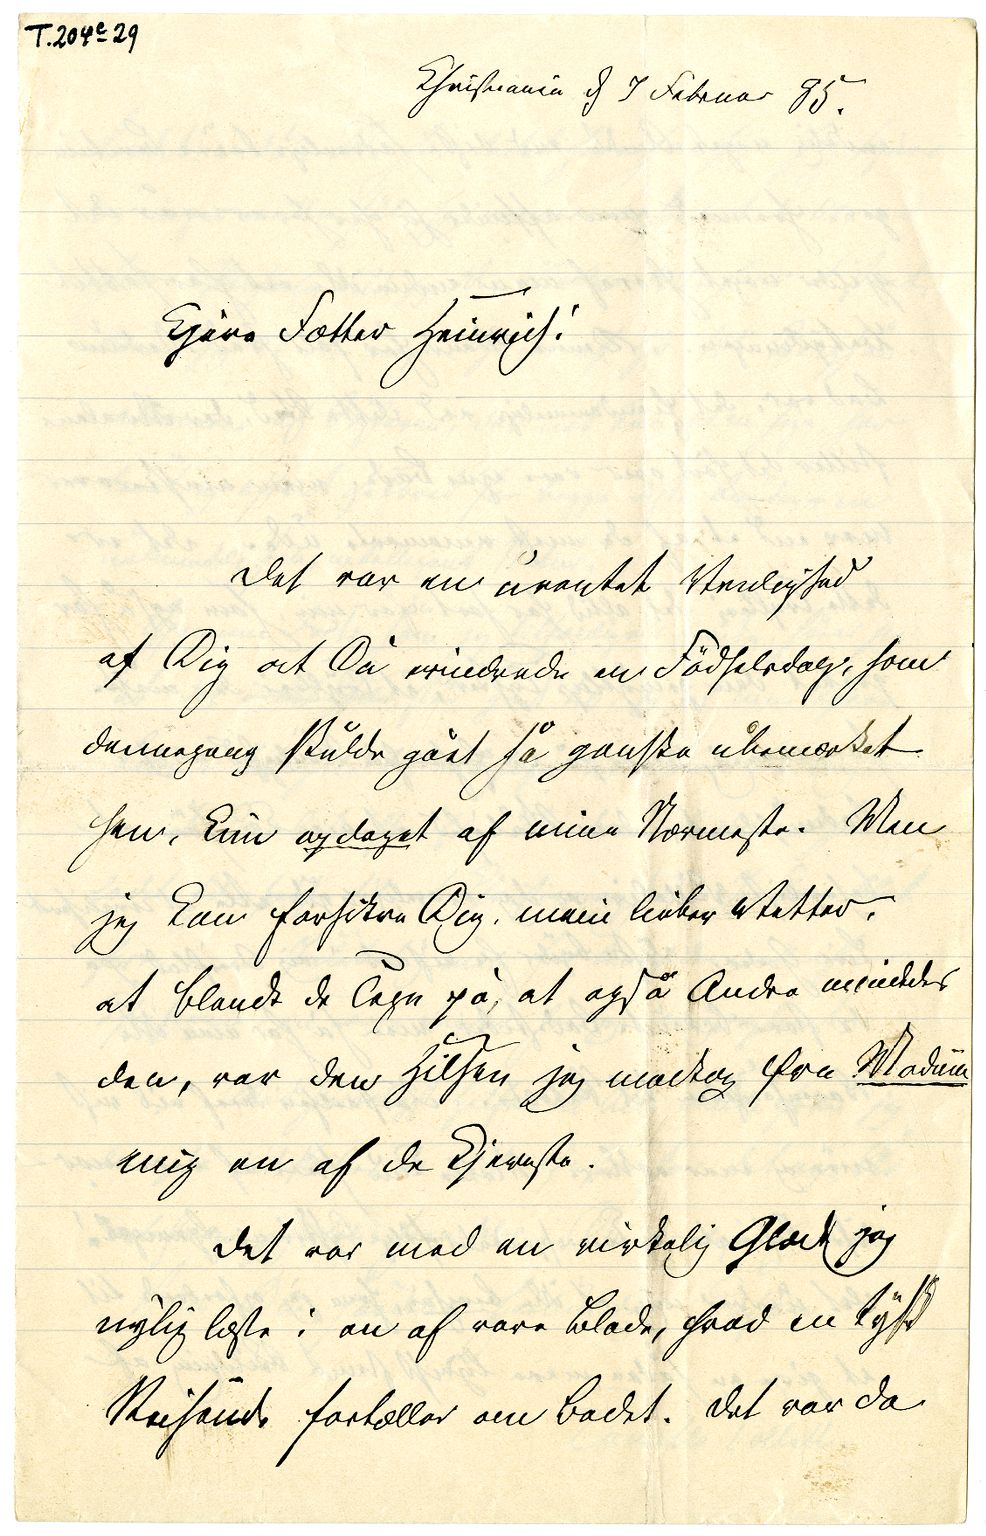 T.204e29
Christiania d 7 Februar 85.
Kjære Fætter Heinrich!
Det var en uventet Venlighed
af Dig at Du erindrede en Fødselsdag, som
dennegang skulde gået så ganske ubemærket
hen, kun opdaget af mine Nærmeste. Men
jeg kan forsikre Dig, mein lieber Vetter,
at blandt de Tegn på, at også Andre mindedes
den, var den Hilsen jeg modtog fra Modum
mig en af de kjereste.
Det var med en virkelig Glæde jeg
nylig læste i en af vore Blade, hvad en tysk
Reisende fortæller om Badet. Det var da